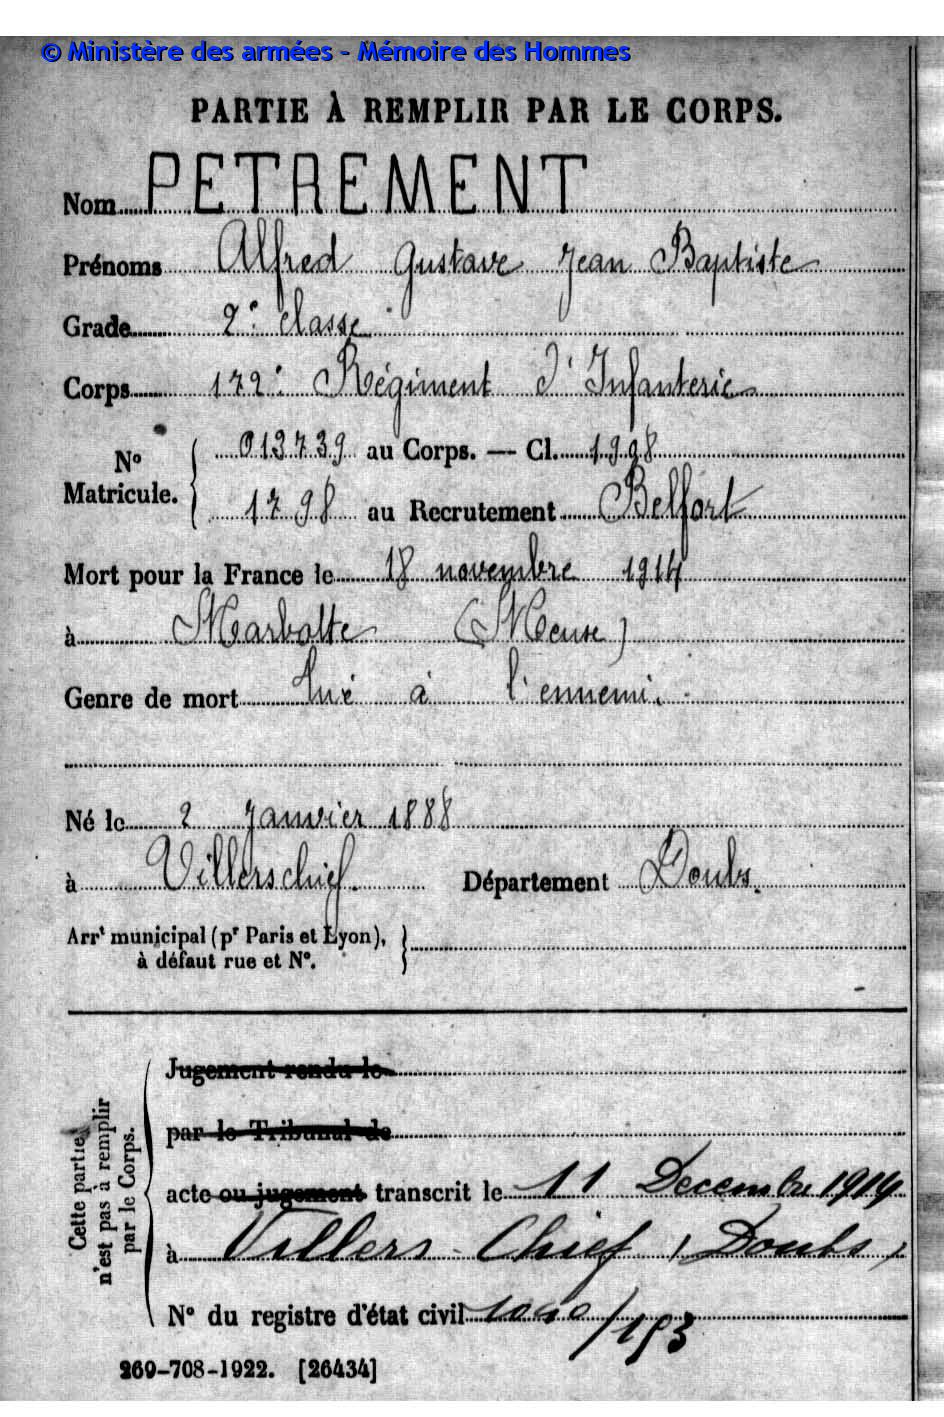 © Ministère des armées - Mémoire des Hommes
PARTIE À REMPLIR PAR LE CORPS.
Nom PETREMENT
Prénoms Alfred Gustave Jean Baptiste
Grade 2e classe
Corps 172e Régiment d'Infanterie
No Matricule. 013739 au Corps. — Cl. 1908
1798 au Recrutement Belfort
Mort pour la France le 18 novembre 1914
à Marbotte (Meuse)
Genre de mort tué à l'ennemi.
Né le 2 Janvier 1888
à Villerschief. Département Doubs.
Arrt municipal (pr Paris et Lyon),
à défaut rue et No.
Cette partie
n'est pas à remplir
par le Corps.
Jugement rendu le
par le Tribunal de
acte ou jugement transcrit le 11 Decembre 1914
à Villers-Chief (Doubs)
No du registre d'état civil /153
269-708-1922. [26434]